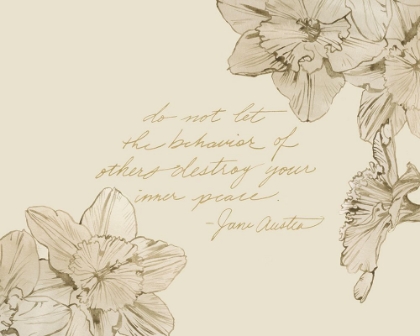 do not let
the behavior of
others destroy your
inner peace.
-Jane Austen